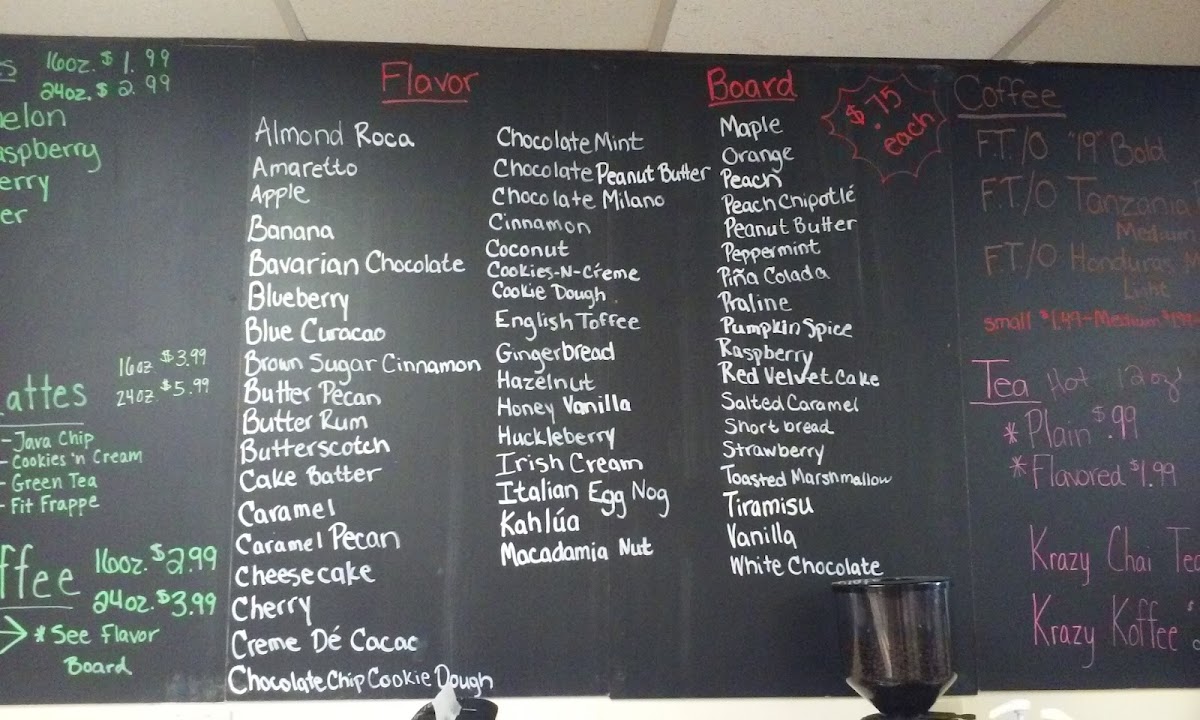 16oz. $1.99
24oz. $2.99
16oz $3.99
24oz. $5.99
-Java Chip
-Cookies 'n Cream
-Green Tea
-Fit Frappe
16oz. $2.99
24oz. $3.99
*See Flavor
Board
Flavor Board
$.75
each
Almond Roca
Amaretto
Apple
Banana
Bavarian Chocolate
Blueberry
Blue Curacao
Brown Sugar Cinnamon
Butter Pecan
Butter Rum
Butterscotch
Cake Batter
Caramel
Caramel Pecan
Cheesecake
Cherry
Creme Dé Cacao
Chocolate Chip Cookie Dough
Chocolate Mint
Chocolate Peanut Butter
Chocolate Milano
Cinnamon
Coconut
Cookies-N-Créme
Cookie Dough
English Toffee
Gingerbread
Hazelnut
Honey Vanilla
Huckleberry
Irish Cream
Italian Egg Nog
Kahlúa
Macadamia Nut
Maple
Orange
Peach
Peach Chipotlé
Peanut Butter
Peppermint
Piña Colada
Praline
Pumpkin Spice
Raspberry
Red Velvet Cake
Salted Caramel
Short bread
Strawberry
Toasted Marshmallow
Tiramisu
Vanilla
White Chocolate
Coffee
F.T./O "19" Bold
F.T./O Tanzania
Medium
F.T./O Honduras
Light
small $1.49-Medium
Tea Hot 12oz
*Plain $.99
*Flavored $1.99
Krazy Chai Tea
Krazy Koffee